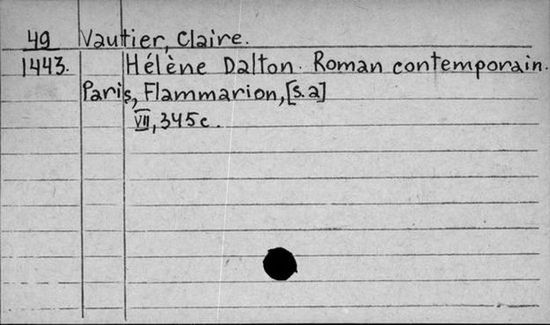 49 Vautier, Claire.
1443. Hélène Dalton. Roman contemporain.
Paris, Flammarion, [s.a]
VII, 345 c.